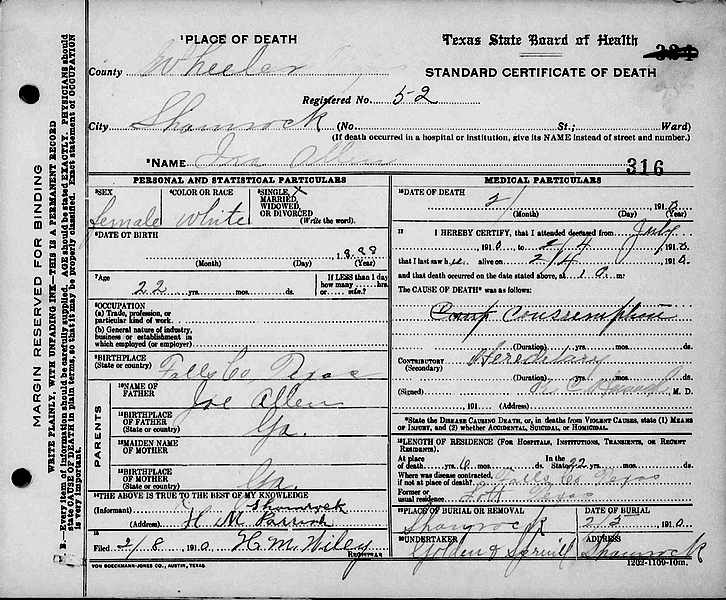 PLACE OF DEATH
Texas State Board of Health
County Wheeler
STANDARD CERTIFICATE OF DEATH
Registered No. 52
City Shamrock (No. St.; Ward)
(If death occurred in a hospital or institution, give its NAME instead of street and number.)
NAME Allen 316
PERSONAL AND STATISTICAL PARTICULARS
SEX female
COLOR OR RACE White
SINGLE, X MARRIED, WIDOWED, OR DIVORCED (Write the word.)
DATE OF BIRTH 1888
(Month) (Day) (Year)
Age 22 yrs. mos. ds.
If LESS than 1 day how many hrs. or min.?
OCCUPATION
(a) Trade, profession, or particular kind of work
(b) General nature of industry, business or establishment in which employed (or employer)
BIRTHPLACE (State or country) Falls Co Texas
PARENTS
NAME OF FATHER Joe Allen
BIRTHPLACE OF FATHER (State or country) Ga.
MAIDEN NAME OF MOTHER
BIRTHPLACE OF MOTHER (State or country) Ga.
THE ABOVE IS TRUE TO THE BEST OF MY KNOWLEDGE
Informant Shamrock
Address H M
Filed 2/8 1910 H. M. Wiley REGISTRAR
VON BOECKMANN-JONES CO., AUSTIN, TEXAS
MEDICAL PARTICULARS
DATE OF DEATH 2/ 1910
(Month) (Day) (Year)
I HEREBY CERTIFY, that I attended deceased from July
1910 to 2/4 1910
that I last saw h er alive on 2/4 1910
and that death occurred on the date stated above, at 10 m.
The CAUSE OF DEATH* was as follows:
consumption
(Duration) yrs. mos. ds.
CONTRIBUTORY (Secondary) Hereditary
(Duration) yrs. mos. ds.
(Signed) M. D.
191 (Address)
*State the DISEASE CAUSING DEATH, or, in deaths from VIOLENT CAUSES, state (1) MEANS OF INJURY, and (2) whether ACCIDENTAL, SUICIDAL, or HOMICIDAL.
LENGTH OF RESIDENCE (FOR HOSPITALS, INSTITUTIONS, TRANSIENTS, OR RECENT RESIDENTS).
At place of death yrs. 6 mos. ds. In the State 22 yrs. mos. ds.
Where was disease contracted, if not at place of death? Falls Co Texas
Former or usual residence Texas
PLACE OF BURIAL OR REMOVAL Shamrock
DATE OF BURIAL 2/5 1910
UNDERTAKER Golden &
ADDRESS Shamrock
1202-1109-10m.
MARGIN RESERVED FOR BINDING
WRITE PLAINLY, WITH UNFADING INK—THIS IS A PERMANENT RECORD
B.—Every item of information should be carefully supplied. AGE should be stated EXACTLY. PHYSICIANS should state CAUSE OF DEATH in plain terms, so that it may be properly classified. Exact statement of OCCUPATION is very important.